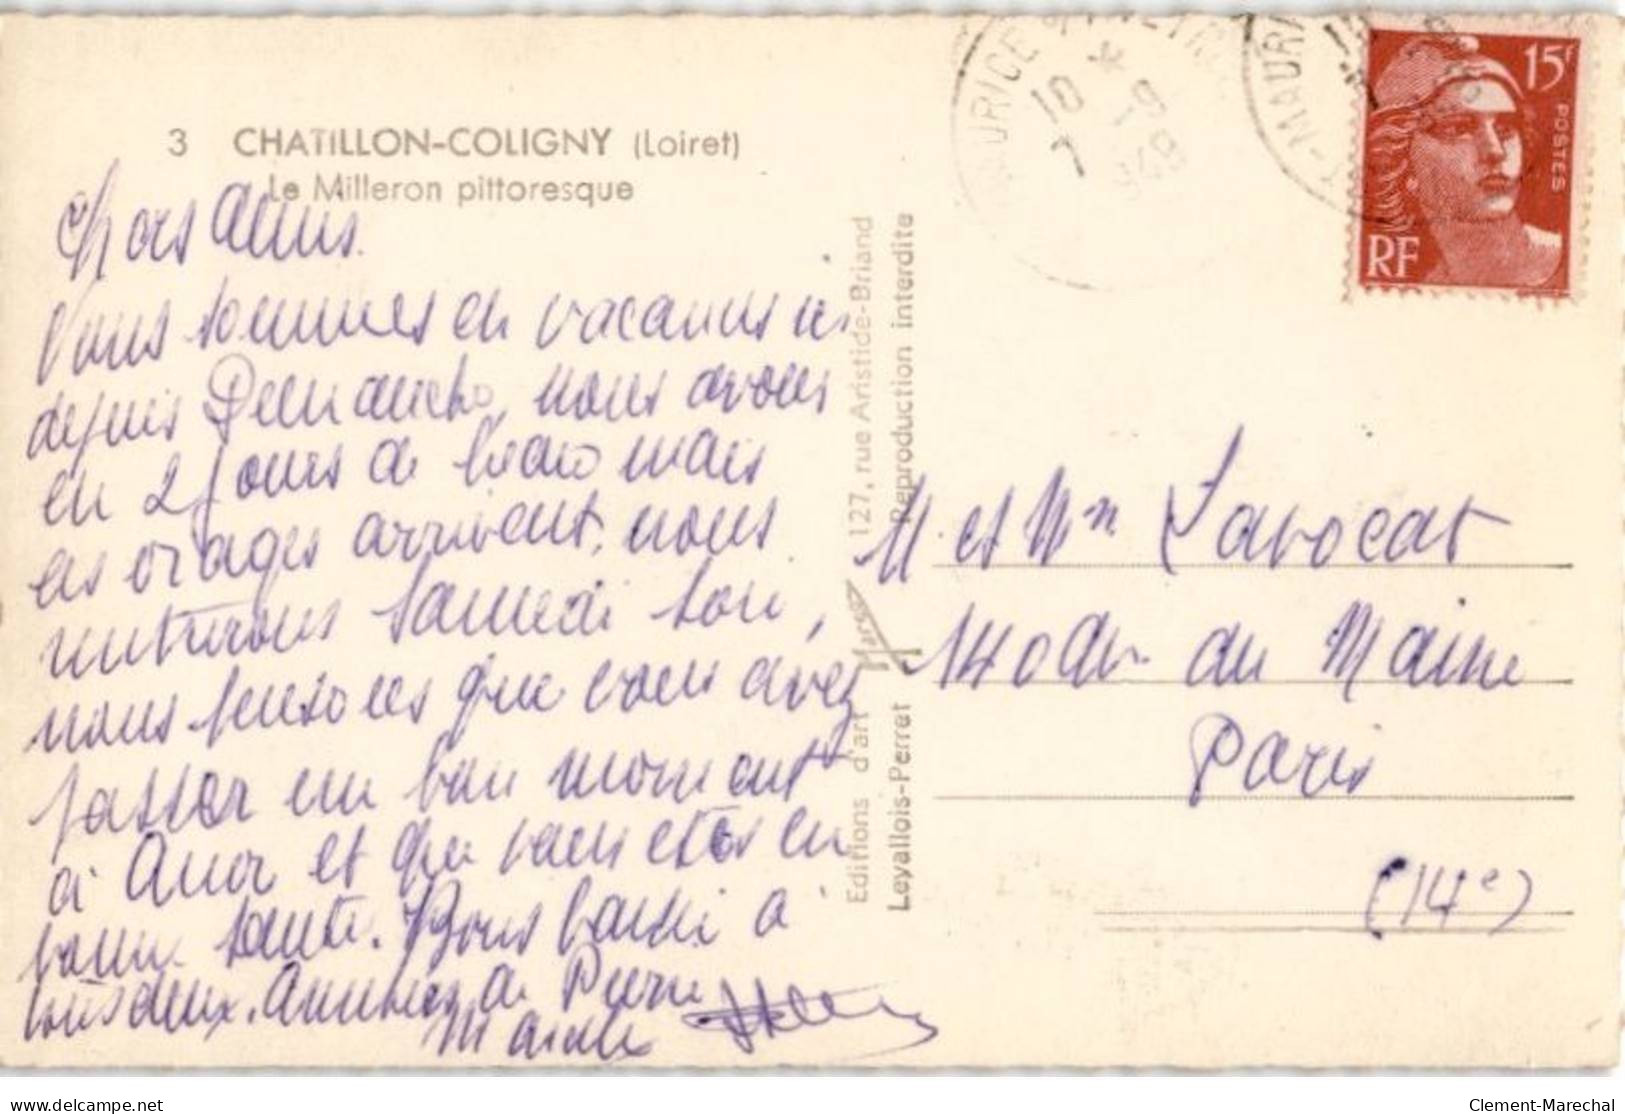 3 CHATILLON-COLIGNY (Loiret)
Le Milleron pittoresque
Chers Amis.
Nous sommes en vacances ici
depuis Dimanche, nous avons
eu 2 jours de beau mais
les orages arrivent, nous
rentrerons Samedi soir,
nous pensons que vous avez
passer un bon moment
à et que vous etes en
bonne santé. Bons baisers à
tous deux. Amitiés de Pierre
Marcelle
Editions d'art 127, rue Aristide-Briand
Levallois-Perret Reproduction interdite
MAURICE
10 * 9
7 948
MAURI
15f
POSTES
RF
M. et Mme Lavocat
140 Av. du Maine
Paris
(14e)
Clement-Marechal